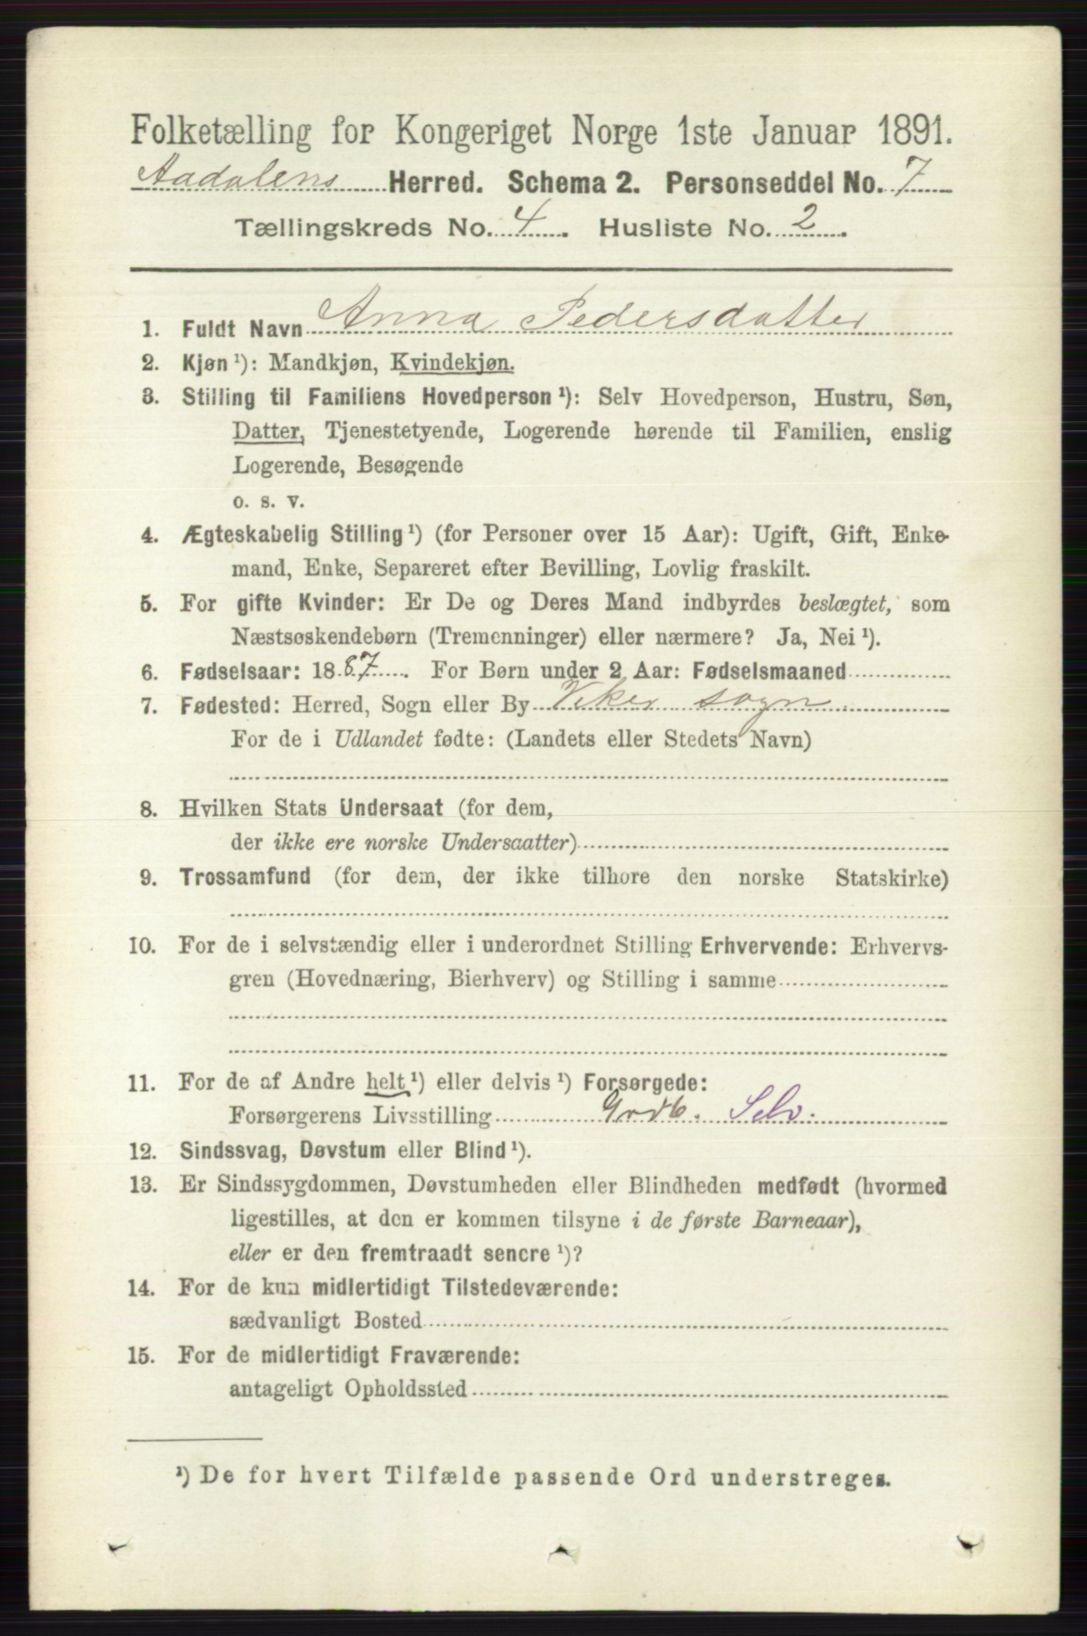 Folketælling for Kongeriget Norge 1ste Januar 1891.
Aadalens Herred. Schema 2. Personseddel No. 7
Tællingskreds No. 4. Husliste No. 2.
1. Fuldt Navn Anna Pedersdatter
2. Kjøn ¹): Mandkjøn, Kvindekjøn.
3. Stilling til Familiens Hovedperson ¹): Selv Hovedperson, Hustru, Søn,
Datter, Tjenestetyende, Logerende hørende til Familien, enslig
Logerende, Besøgende
o. s. v.
4. Ægteskabelig Stilling ¹) (for Personer over 15 Aar): Ugift, Gift, Enke-
mand, Enke, Separeret efter Bevilling, Lovlig fraskilt.
5. For gifte Kvinder: Er De og Deres Mand indbyrdes beslægtet, som
Næstsøskendebørn (Tremenninger) eller nærmere? Ja, Nei ¹).
6. Fødselsaar: 1887. For Børn under 2 Aar: Fødselsmaaned
7. Fødested: Herred, Sogn eller By Viker sogn
For de i Udlandet fødte: (Landets eller Stedets Navn)
8. Hvilken Stats Undersaat (for dem,
der ikke ere norske Undersaatter)
9. Trossamfund (for dem, der ikke tilhore den norske Statskirke)
10. For de i selvstændig eller i underordnet Stilling Erhvervende: Erhvervs-
gren (Hovednæring, Bierhverv) og Stilling i samme
11. For de af Andre helt ¹) eller delvis ¹) Forsørgede:
Forsørgerens Livsstilling Grdb. Selv.
12. Sindssvag, Døvstum eller Blind ¹).
13. Er Sindssygdommen, Døvstumheden eller Blindheden medfødt (hvormed
ligestilles, at den er kommen tilsyne i de første Barneaar),
eller er den fremtraadt senere ¹)?
14. For de kun midlertidigt Tilstedeværende:
sædvanligt Bosted
15. For de midlertidigt Fraværende:
antageligt Opholdssted
¹) De for hvert Tilfælde passende Ord understreges.